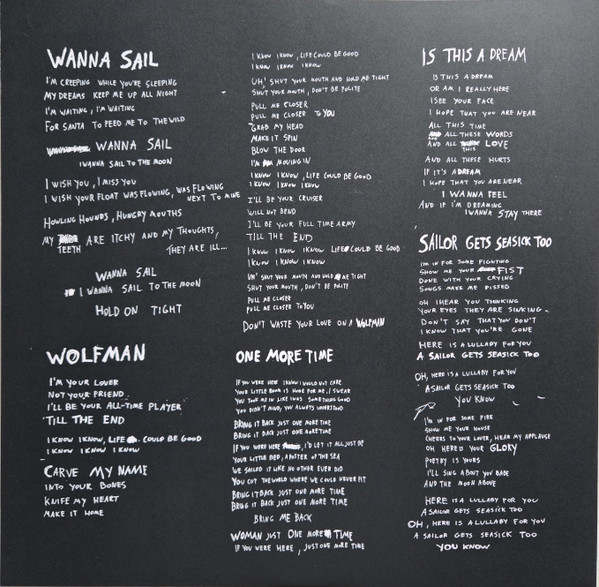 WANNA SAIL
I'M CREEPING WHILE YOU'RE SLEEPING
MY DREAMS KEEP ME UP ALL NIGHT
I'M WAITING, I'M WAITING
FOR SANTA TO FEED ME TO THE WILD
WANNA SAIL
I WANNA SAIL TO THE MOON
I WISH YOU, I MISS YOU
I WISH YOUR FLOAT WAS FLOWING, WAS FLOWING
NEXT TO MINE
HOWLING HOUNDS, HUNGRY MOUTHS
MY TEETH ARE ITCHY AND MY THOUGHTS,
THEY ARE ILL...
WANNA SAIL
I WANNA SAIL TO THE MOON
HOLD ON TIGHT
WOLFMAN
I'M YOUR LOVER
NOT YOUR FRIEND
I'LL BE YOUR ALL-TIME PLAYER
'TILL THE END
I KNOW I KNOW, LIFE COULD BE GOOD
I KNOW I KNOW I KNOW
CARVE MY NAME
INTO YOUR BONES
KNIFE MY HEART
MAKE IT HOME
I KNOW I KNOW, LIFE COULD BE GOOD
I KNOW I KNOW I KNOW
UH' SHUT YOUR MOUTH AND HOLD ME TIGHT
SHUT YOUR MOUTH, DON'T BE POLITE
PULL ME CLOSER
PULL ME CLOSER TO YOU
GRAB MY HEAD
MAKE IT SPIN
BLOW THE DOOR
I'M MOVING IN
I KNOW I KNOW, LIFE COULD BE GOOD
I KNOW I KNOW I KNOW
I'LL BE YOUR CRUISER
WILL NOT BEND
I'LL BE YOUR FULL TIME ARMY
TILL THE END
I KNOW I KNOW I KNOW LIFE COULD BE GOOD
I KNOW I KNOW I KNOW
UH' SHUT YOUR MOUTH AND HOLD ME TIGHT
SHUT YOUR MOUTH, DON'T BE POLITE
PULL ME CLOSER
PULL ME CLOSER TO YOU
DON'T WASTE YOUR LOVE ON A WOLFMAN
ONE MORE TIME
IF YOU WERE HERE I KNOW I WOULD NOT CARE
YOUR LITTLE BOOK IS HOME FOR ME, I SWEAR
YOU TOOK ME IN LIKE I WAS SOMETHING GOOD
YOU DIDN'T MIND, YOU ALWAYS UNDERSTOOD
BRING IT BACK JUST ONE MORE TIME
BRING IT BACK JUST ONE MORE TIME
IF YOU WERE HERE I'D LET IT ALL JUST BE
YOUR LITTLE BED, A MASTER OF THE SEA
WE SAILED IT LIKE NO OTHER EVER DID
YOU CUT THE WORLD WHERE WE COULD NEVER FIT
BRING IT BACK JUST ONE MORE TIME
BRING IT BACK JUST ONE MORE TIME
BRING ME BACK
WOMAN JUST ONE MORE TIME
IF YOU WERE HERE, JUST ONE MORE TIME
IS THIS A DREAM
IS THIS A DREAM
OR AM I REALLY HERE
I SEE YOUR FACE
I HOPE THAT YOU ARE NEAR
ALL THIS TIME
AND ALL THESE WORDS
AND ALL THIS LOVE
AND ALL THESE HURTS
IF IT'S A DREAM
I HOPE THAT YOU ARE NEAR
I WANNA FEEL
AND IF I'M DREAMING
I WANNA STAY THERE
SAILOR GETS SEASICK TOO
I'M IN FOR SOME FIGHTING
SHOW ME YOUR FIST
DONE WITH YOUR CRYING
SONGS MAKE ME PISSED
OH I HEAR YOU THINKING
YOUR EYES THEY ARE SINKING
DON'T SAY THAT YOU DON'T
I KNOW THAT YOU'RE GONE
HERE IS A LULLABY FOR YOU
A SAILOR GETS SEASICK TOO
OH, HERE IS A LULLABY FOR YOU
A SAILOR GETS SEASICK TOO
YOU KNOW
I'M IN FOR SOME FIRE
SHOW ME YOUR HOUSE
CHEERS TO YOUR LOVER, HEAR MY APPLAUSE
OH HERE'D YOUR GLORY
POETRY IS YOURS
I'LL SING ABOUT YOU BABE
AND THE MOON ABOVE
HERE IS A LULLABY FOR YOU
A SAILOR GETS SEASICK TOO
OH, HERE IS A LULLABY FOR YOU
A SAILOR GETS SEASICK TOO
YOU KNOW